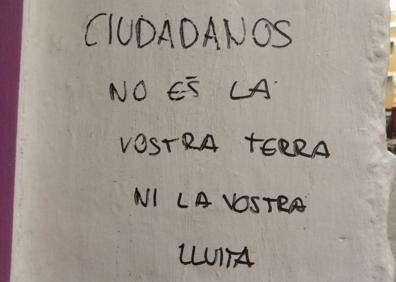 CIUDADANOS
NO ES LA
VOSTRA TERRA
NI LA VOSTRA
LLUITA